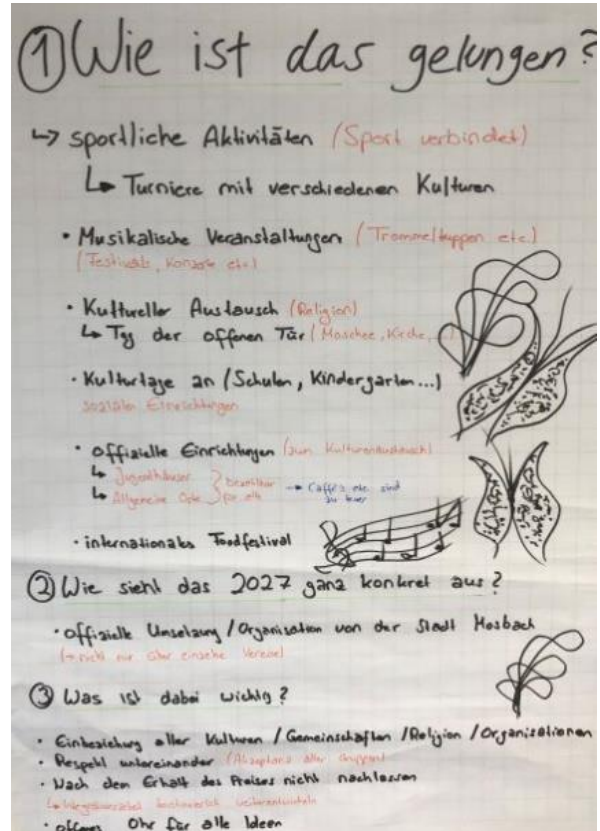 ① Wie ist das gelungen?
↳ sportliche Aktivitäten (Sport verbindet)
↳ Turniere mit verschiedenen Kulturen
• Musikalische Veranstaltungen (Trommelgruppen etc.)
(Festivals, Konzerte etc.)
• Kultureller Austausch (Religion)
↳ Tag der offenen Tür (Moschee, Kirche,
• Kulturtage an (Schulen, Kindergarten...)
soziale Einrichtungen
• offizielle Einrichtungen (zum Kulturenaustausch)
↳ Jugendhäuser
↳ Allgemeine Orte } bezahlbar für alle → Caffés etc. sind zu teuer
• internationales Foodfestival
② Wie sieht das 2027 ganz konkret aus?
• offizielle Umsetzung / Organisation von der Stadt Mosbach
(→ nicht nur über einzelne Vereine)
③ Was ist dabei wichtig?
• Einbeziehung aller Kulturen / Gemeinschaften / Religion / Organisationen
• Respekt untereinander (Akzeptanz aller Gruppen)
• Nach dem Erhalt des Preises nicht nachlassen
↳ kontinuierlich weiterentwickeln
• offenes Ohr für alle Ideen